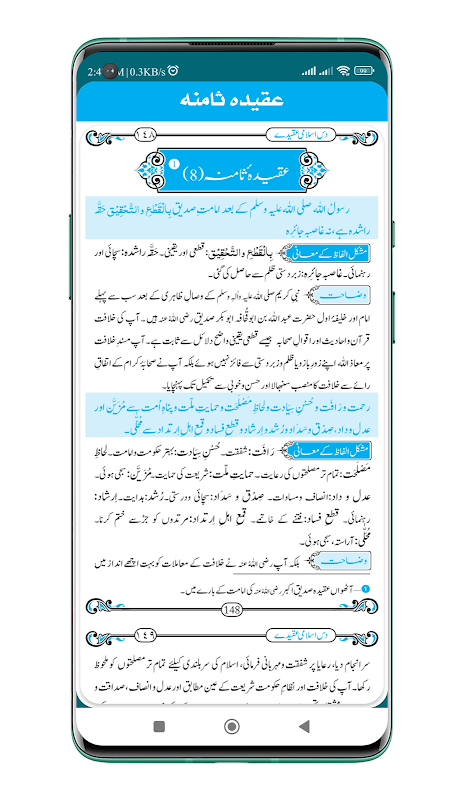 2:4 M|0.3KB/s
عقیدہ ثامنہ
۱۴۸ دس اسلامی عقیدے
عقیدۂ ثامنہ (8) ❶
رسولُ اللہ صلی اللہ علیہ وسلم کے بعد امامتِ صدیق بِالْقَطْعِ وَالتَّحْقِیْق حَقَّہ
راشدہ ہے، نہ غاصبہ جائرہ
مشکل الفاظ کے معانی بِالْقَطْعِ وَالتَّحْقِیْق: قطعی اور یقینی۔ حَقَّہ راشدہ: سچائی اور
رہنمائی۔ غاصبہ جائرہ: زبردستی ظلم سے حاصل کی گئی۔
وضاحت نبی کریم صلی اللہ علیہ واٰلہٖ وسلم کے وصالِ ظاہری کے بعد سب سے پہلے
امام اور خلیفۂ اول حضرت عبد اللہ بن ابو قُحافہ ابوبکر صدیق رضی اللہ عنہ ہیں۔ آپ کی خلافت
قرآن و احادیث اور اقوالِ صحابہ جیسے قطعی یقینی واضح دلائل سے ثابت ہے۔ آپ مسندِ خلافت
پر معاذ اللہ اپنے زورِ بازو یا ظلم و زبردستی سے فائز نہیں ہوئے بلکہ آپ نے صحابۂ کرام کے اتفاقِ
رائے سے خلافت کا منصب سنبھالا اور حسن و خوبی سے تکمیل تک پہنچایا۔
رحمت و رَافت و حُسْنِ سِیَادت و لحاظِ مَصْلحَت و حمایتِ ملّت و پناہِ اُمت سے مُزَیَّن اور
عدل و داد، صِدْق و سَداد و رُشد و اِرشاد و قطعِ فساد و قمعِ اہلِ اِرتداد سے محلّٰی۔
مشکل الفاظ کے معانی رَافَت: شفقت۔ حُسْنِ سِیادت: بہتر حکومت و امامت۔ لحاظِ
مَصْلحَت: تمام تر مصلحتوں کی رعایت۔ حمایتِ ملّت: شریعت کی حمایت۔ مُزَیَّن: سجی ہوئی۔
عدل و داد: انصاف و مساوات۔ صِدْق و سَداد: سچائی و درستی۔ رُشد: ہدایت۔ اِرشاد:
رہنمائی۔ قطعِ فساد: فتنے کے خاتمے۔ قمعِ اہلِ اِرتداد: مرتدوں کو جڑ سے ختم کرنا۔
مُحلّٰی: آراستہ، سجی ہوئی۔
وضاحت بلکہ آپ رضی اللہ عنہ نے خلافت کے معاملات کو بہت اچھے انداز میں
❶—آٹھواں عقیدہ صدیقِ اکبر رضی اللہ عنہ کی امامت کے بارے میں۔
148
۱۴۹ دس اسلامی عقیدے
سر انجام دیا، رعایا پر شفقت و مہربانی فرمائی، اسلام کی سربلندی کیلئے تمام تر مصلحتوں کو ملحوظ
رکھا۔ آپ کی خلافت اور نظامِ حکومت شریعت کے عین مطابق اور عدل و انصاف، صداقت و